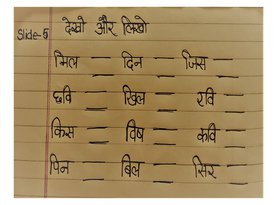 Slide-5 देखो और लिखो
मिल __ दिन __ जिस __
छवि __ खिल __ रवि __
किस __ विष __ कवि __
पिन __ बिल __ सिर __